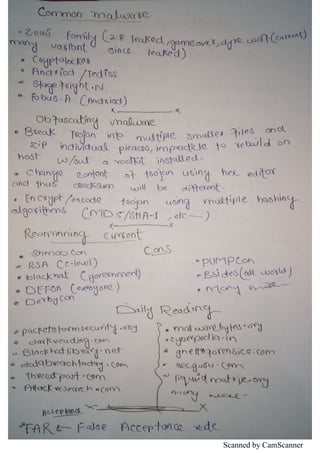 Common malware
• Zeus family (2.8 leaked, gameover, dyre wolf (current)
many variant since leaked)
• Cryptolocker
• Andriod / Tediss
• Stagefright.N
• Fobus.A (Andriod)
Obfuscating malware
• Break Trojan into multiple smaller files and
zip individual pieaces, impracticle to rebuild on
host w/out a rootkit installed.
• Change content of trojan using hex editor
and thus checksum will be different.
• Encrypt/encode trojan using multiple hashing
algorithms (MD5/SHA-1, etc --)
Reaminning current
Cons
• Shmoocon
• RSA (c-level)
• blackhat (government)
• DEFCON (everyone)
• Derbycon
• PUMPCon
• Bsides (all world)
• Many more
Daily Reading
• packetstormsecurity.org
• darkreading.com
• Blackhatlibrary.net
• databreachtoday.com
• Threatpost.com
• Attackresearch.com
• malwarebytes.org
• cyberpedia.in
• ghettoforensics.com
• accguru.com
• liquidmatrix.org
many more -
Acceptance
• FAR ← False Acceptance rate
Scanned by CamScanner